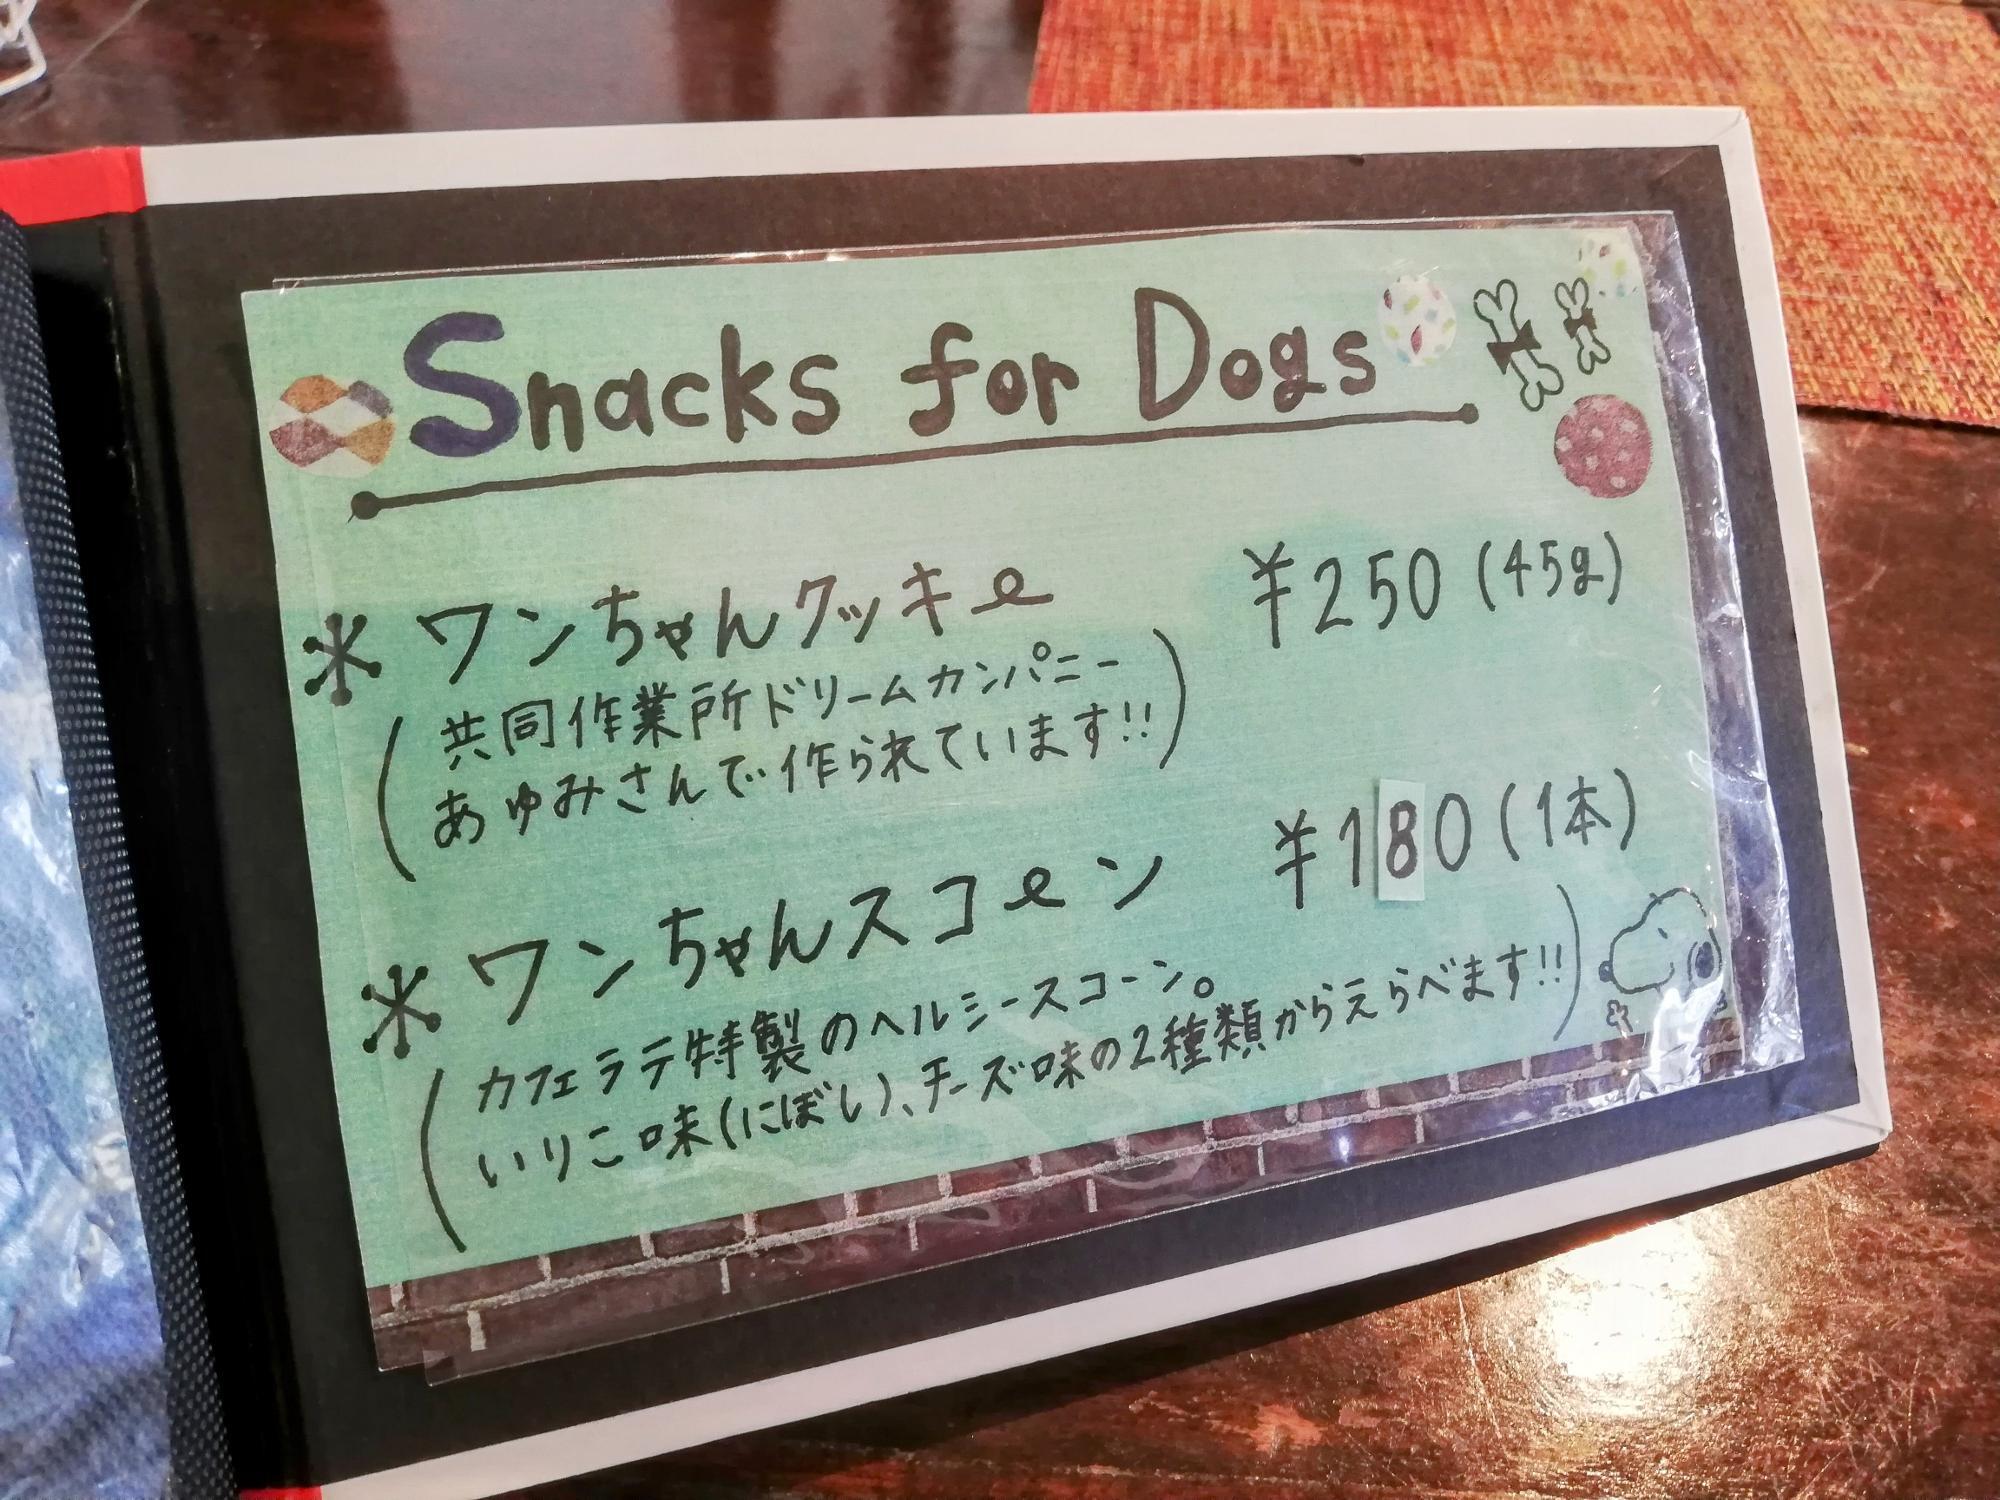 Snacks for Dogs
＊ ワンちゃんクッキー ¥250 (45g)
(共同作業所ドリームカンパニー
あゆみさんで作られています!!)
＊ ワンちゃんスコーン ¥180 (1本)
(カフェラテ特製のヘルシースコーン。
いりこ味(にぼし)、チーズ味の2種類からえらべます!!)